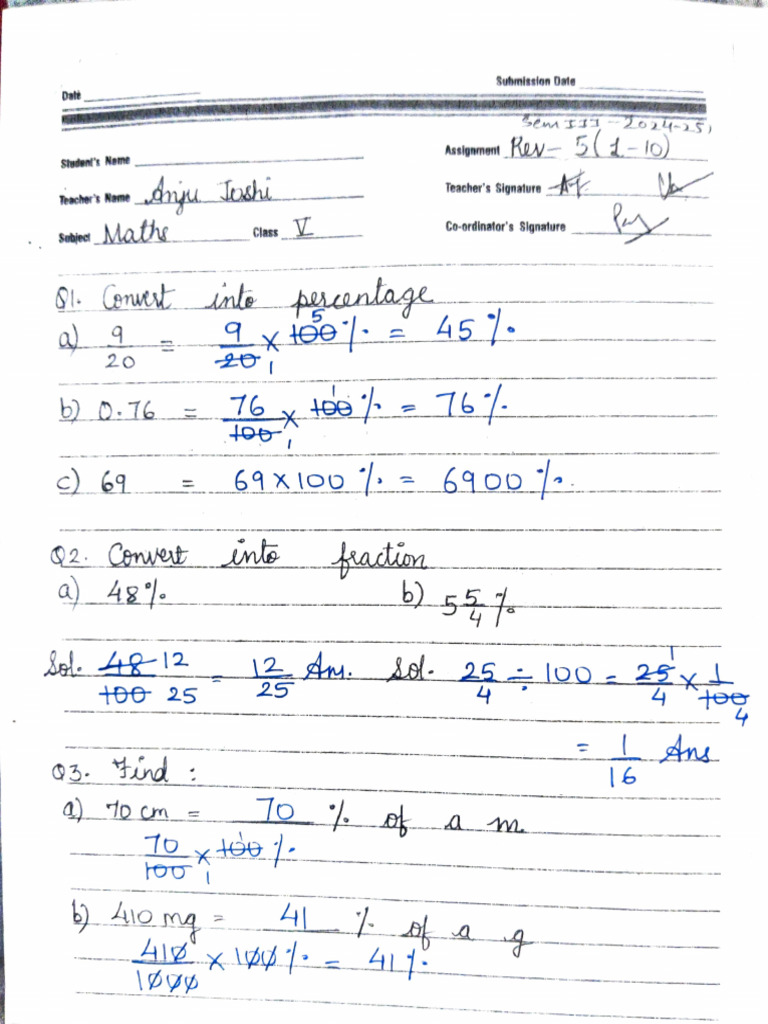 Submission Date
Date
Sem III - 2024-25
Student's Name
Assignment Rev - 5 (1-10)
Teacher's Name Anju Joshi
Teacher's Signature
Subject Maths Class V
Co-ordinator's Signature
Q1. Convert into percentage
a) 9/20 = 9/20 1 × 100 5 % = 45 %
b) 0.76 = 76/100 1 × 100 1 % = 76 %
c) 69 = 69 × 100 % = 6900 %.
Q2. Convert into fraction
a) 48% b) 5 5/4 %
Sol. 48 12/100 25 = 12/25 Ans. Sol. 25/4 ÷ 100 = 25 1/4 × 1/100 4
= 1/16 Ans
Q3. Find :
a) 70 cm = 70 % of a m
70/100 1 × 100 1 %
b) 410 mg = 41 % of a g
410/1000 × 100 % = 41 %